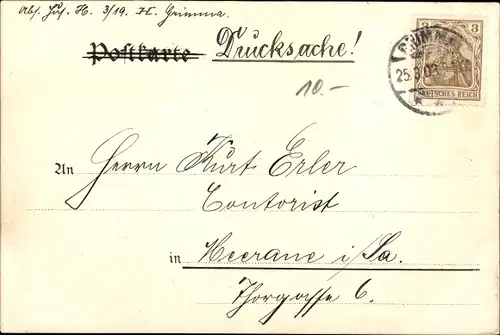 Abs. Huf. H. 3/19. II. Grimma.
Postkarte Drucksache!
3 3
GRIMMA
25.3.02
DEUTSCHES REICH
10.-
An Herrn Kurt Erler
Contorist
in Meerane i/Sa.
Thorgasse 6.